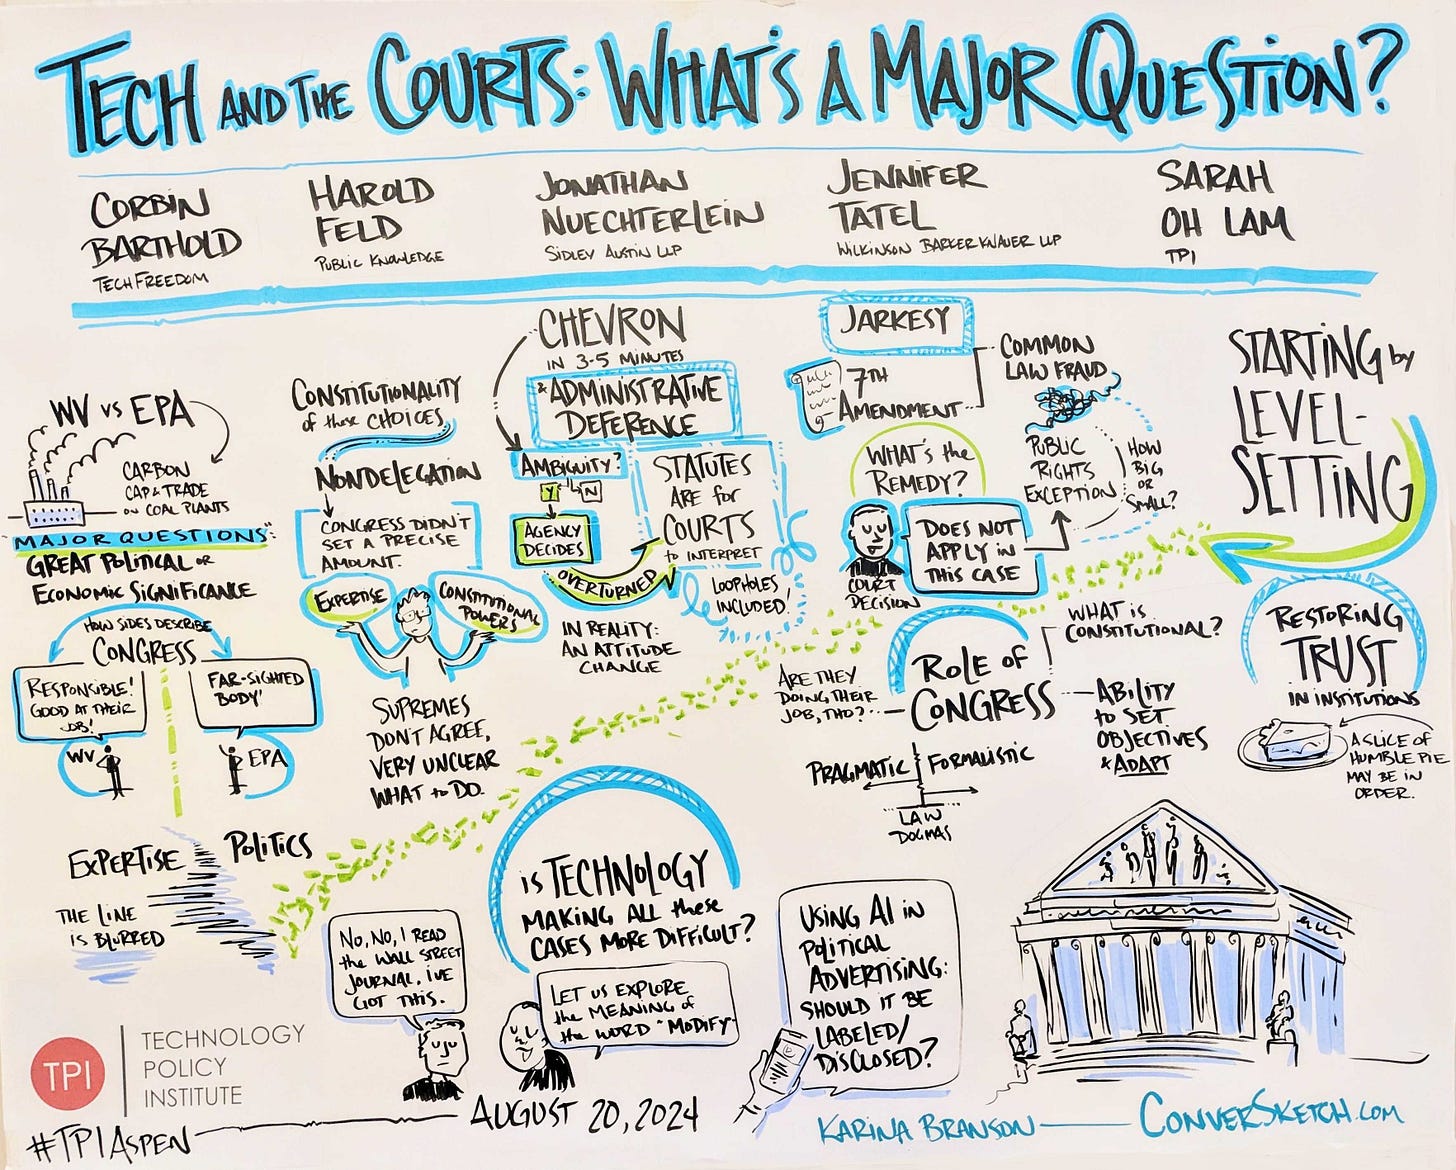 TECH AND THE COURTS: WHAT'S A MAJOR QUESTION?
CORBIN
BARTHOLD
TECHFREEDOM
HAROLD
FELD
PUBLIC KNOWLEDGE
JONATHAN
NUECHTERLEIN
SIDLEY AUSTIN LLP
JENNIFER
TATEL
WILKINSON BARKER KNAUER LLP
SARAH
OH LAM
TPI
STARTING by
LEVEL-
SETTING
JARKESY
7TH
AMENDMENT
COMMON
LAW FRAUD
PUBLIC
RIGHTS
EXCEPTION
HOW
BIG
OR
SMALL?
WHAT'S the
REMEDY?
DOES NOT
APPLY in
THIS CASE
COURT
DECISION
CHEVRON
IN 3-5 MINUTES
& ADMINISTRATIVE
DEFERENCE
AMBIGUITY?
Y
N
AGENCY
DECIDES
OVERTURNED
STATUTES
ARE for
COURTS
to INTERPRET
LOOPHOLES
INCLUDED!
IN REALITY:
AN ATTITUDE
CHANGE
CONSTITUTIONALITY
of these CHOICES
NONDELEGATION
CONGRESS DIDN'T
SET A PRECISE
AMOUNT.
EXPERTISE
CONSTITUTIONAL
POWERS
SUPREMES
DON'T AGREE,
VERY UNCLEAR
WHAT to DO.
WV vs EPA
CARBON
CAP & TRADE
ON COAL PLANTS
"MAJOR QUESTIONS":
GREAT POLITICAL OR
ECONOMIC SIGNIFICANCE
HOW SIDES DESCRIBE
CONGRESS
RESPONSIBLE!
GOOD AT THEIR
JOB!
WV
FAR-SIGHTED
BODY'
EPA
EXPERTISE
POLITICS
THE LINE
IS BLURRED
ARE THEY
DOING THEIR
JOB, THO?
ROLE OF
CONGRESS
WHAT IS
CONSTITUTIONAL?
ABILITY
to SET
OBJECTIVES
& ADAPT
PRAGMATIC
FORMALISTIC
LAW
DOGMAS
RESTORING
TRUST
IN INSTITUTIONS
A SLICE OF
HUMBLE PIE
MAY BE IN
ORDER.
IS TECHNOLOGY
MAKING ALL these
CASES MORE DIFFICULT?
NO, NO, I READ
the WALL STREET
JOURNAL. I'VE
GOT THIS.
LET US EXPLORE
the MEANING of
the WORD "MODIFY"
USING AI in
POLITICAL
ADVERTISING:
SHOULD IT BE
LABELED/
DISCLOSED?
TPI
TECHNOLOGY
POLICY
INSTITUTE
#TPIASPEN
AUGUST 20, 2024
KARINA BRANSON
CONVERSKETCH.COM